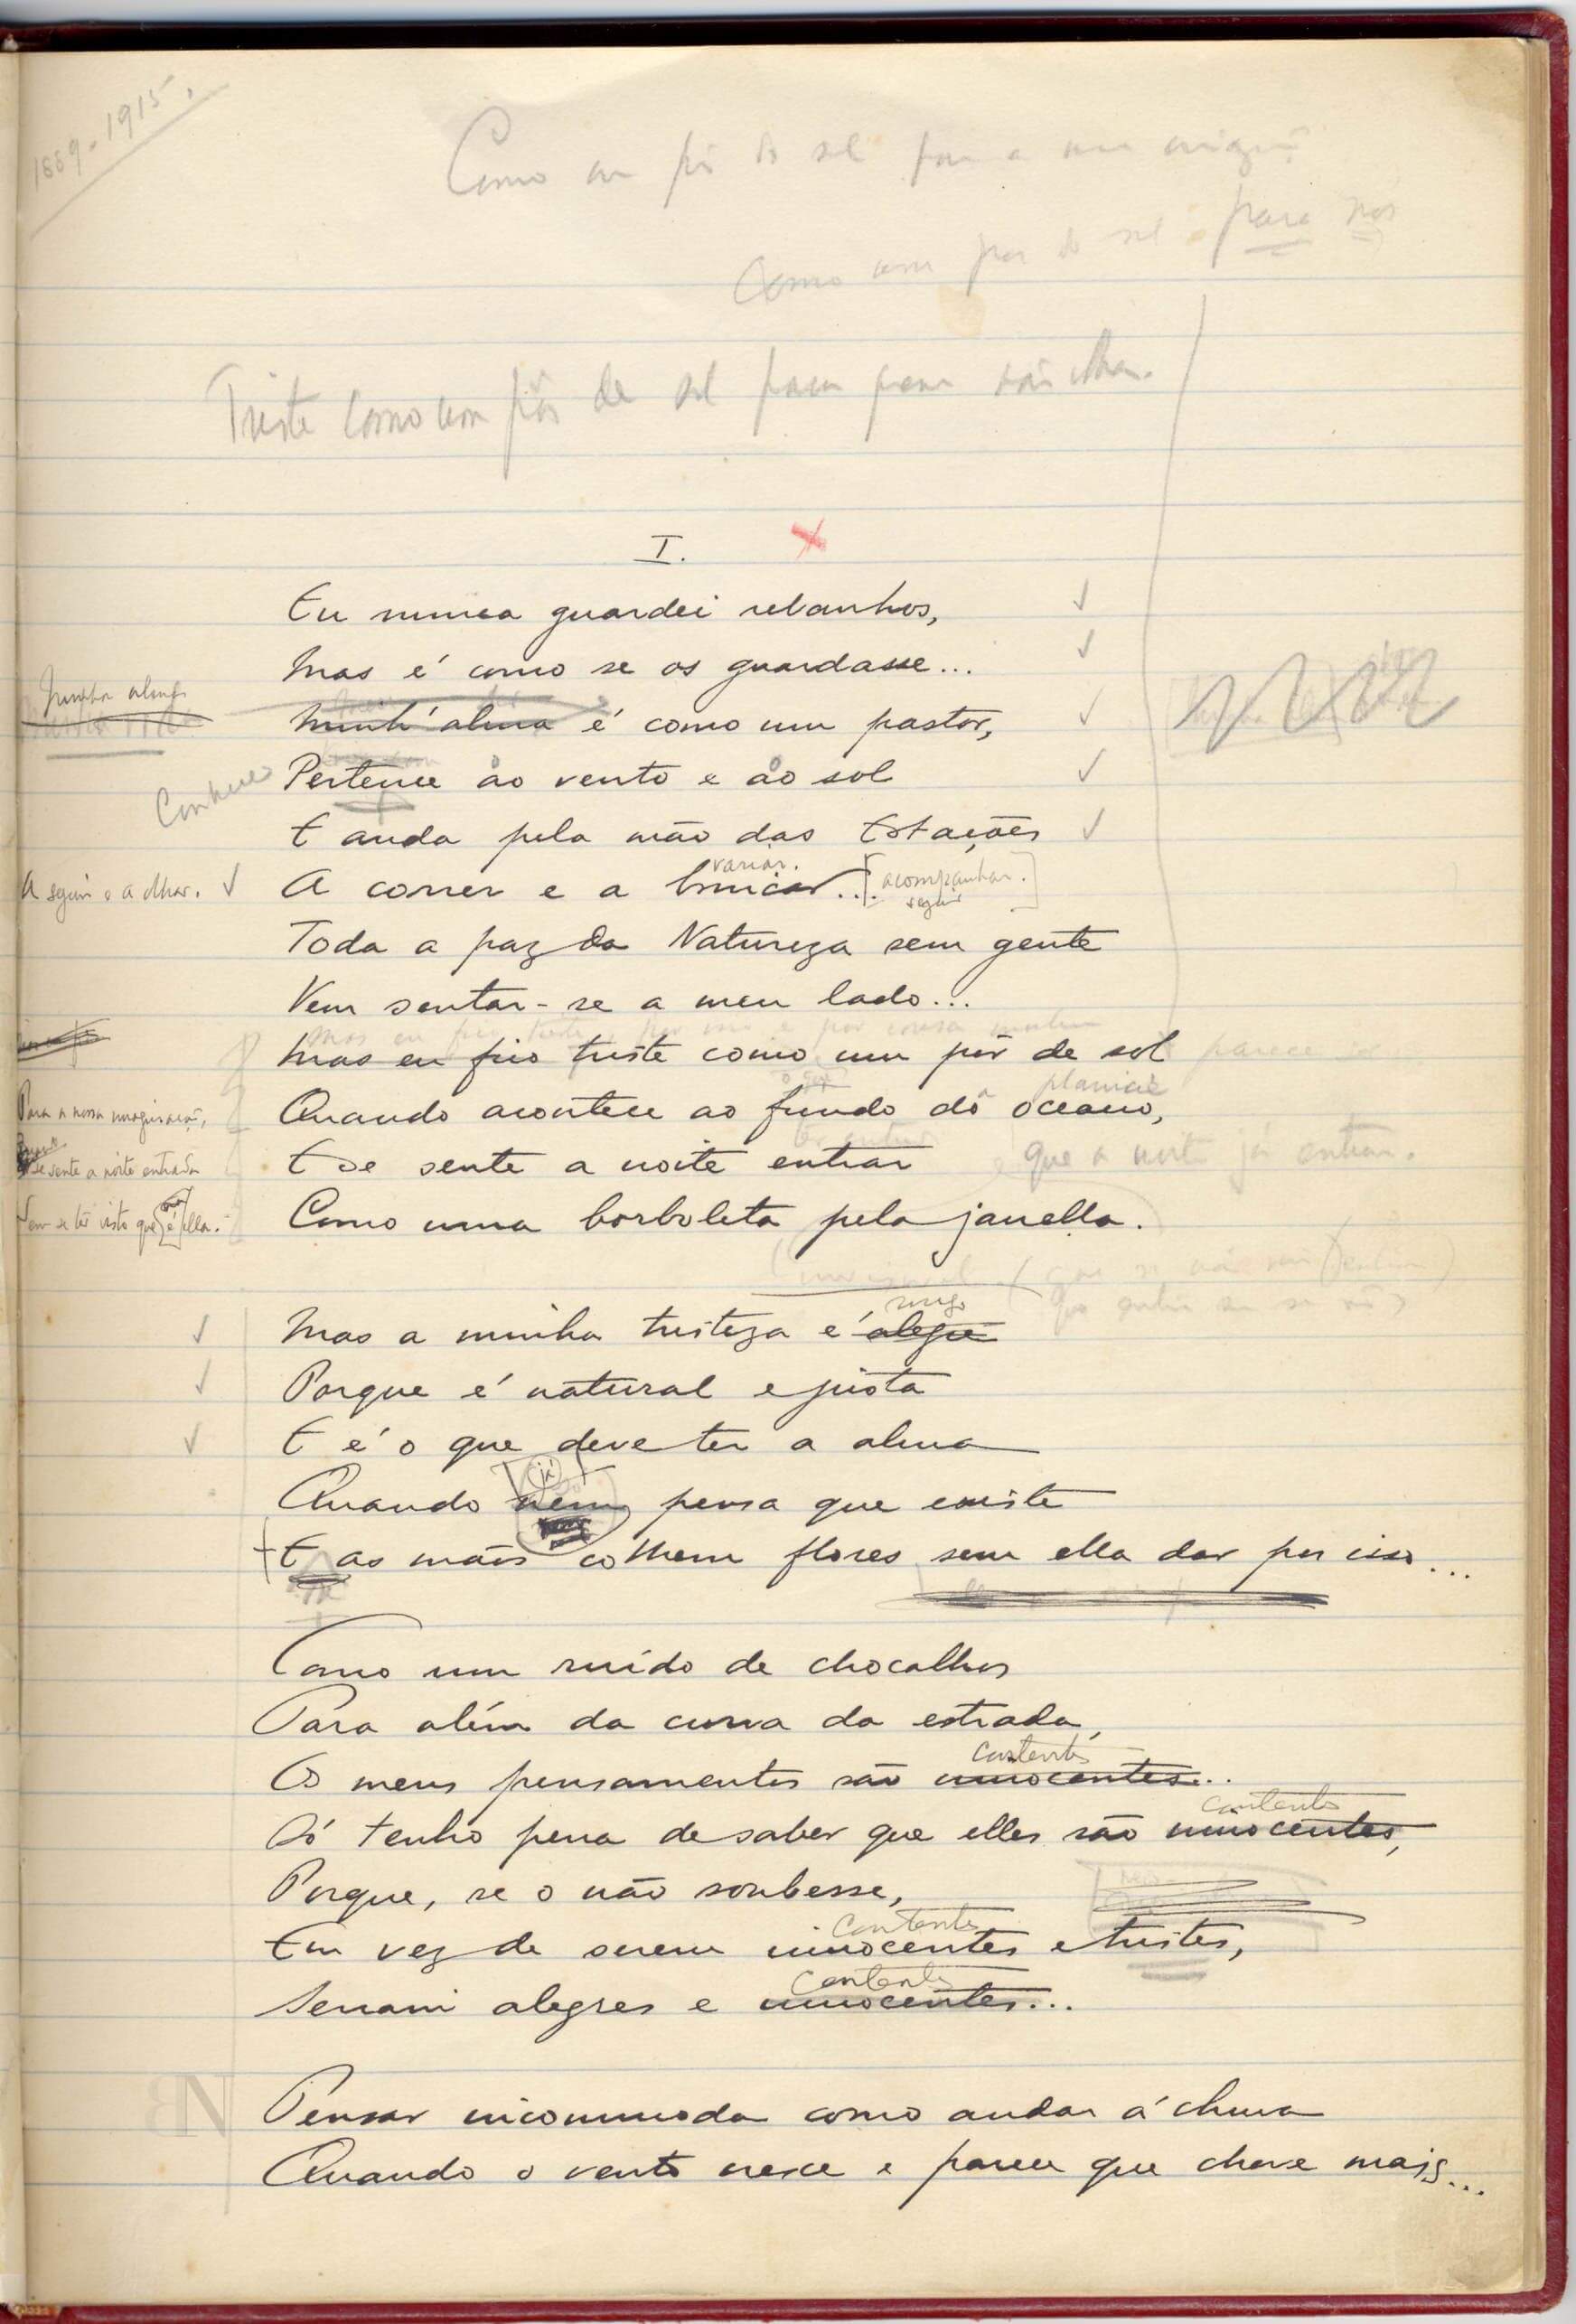 1889-1915.
Como um pôr do sol para a
Como um por do sol para nós
Triste como um pôr de sol para
I.
Eu nunca guardei rebanhos,
Mas é como se os guardasse...
Minha alma
Minh'alma é como um pastor,
Conhece
Pertence ao vento e ao sol
E anda pela mão das Estações
variar.
A seguir e a olhar.
A correr e a brincar... [acompanhar.]
seguir
Toda a paz da Natureza sem gente
Vem sentar-se a meu lado...
Mas eu fico triste como um pôr de sol
planicie
Para a nossa imaginação,
Quando acontece ao fundo do oceano,
se sente a noite entrada
E se sente a noite entrar
que a noite já entrou.
Sem se ter visto que é ella.
Como uma borboleta pela janella.
socego
Mas a minha tristeza é alegre
Porque é natural e justa
E é o que deve ter a alma
já
Quando nem pensa que existe
E as mãos colhem flores sem ella dar por isso...
Como um ruido de chocalhos
Para além da curva da estrada,
contentes
Os meus pensamentos são innocentes...
contentes
Só tenho pena de saber que elles são innocentes,
Porque, se o não soubesse,
contentes
Em vez de serem innocentes e tristes,
contentes
Seriam alegres e innocentes...
Pensar incommoda como andar á chuva
Quando o vento cresce e parece que chove mais...
BN